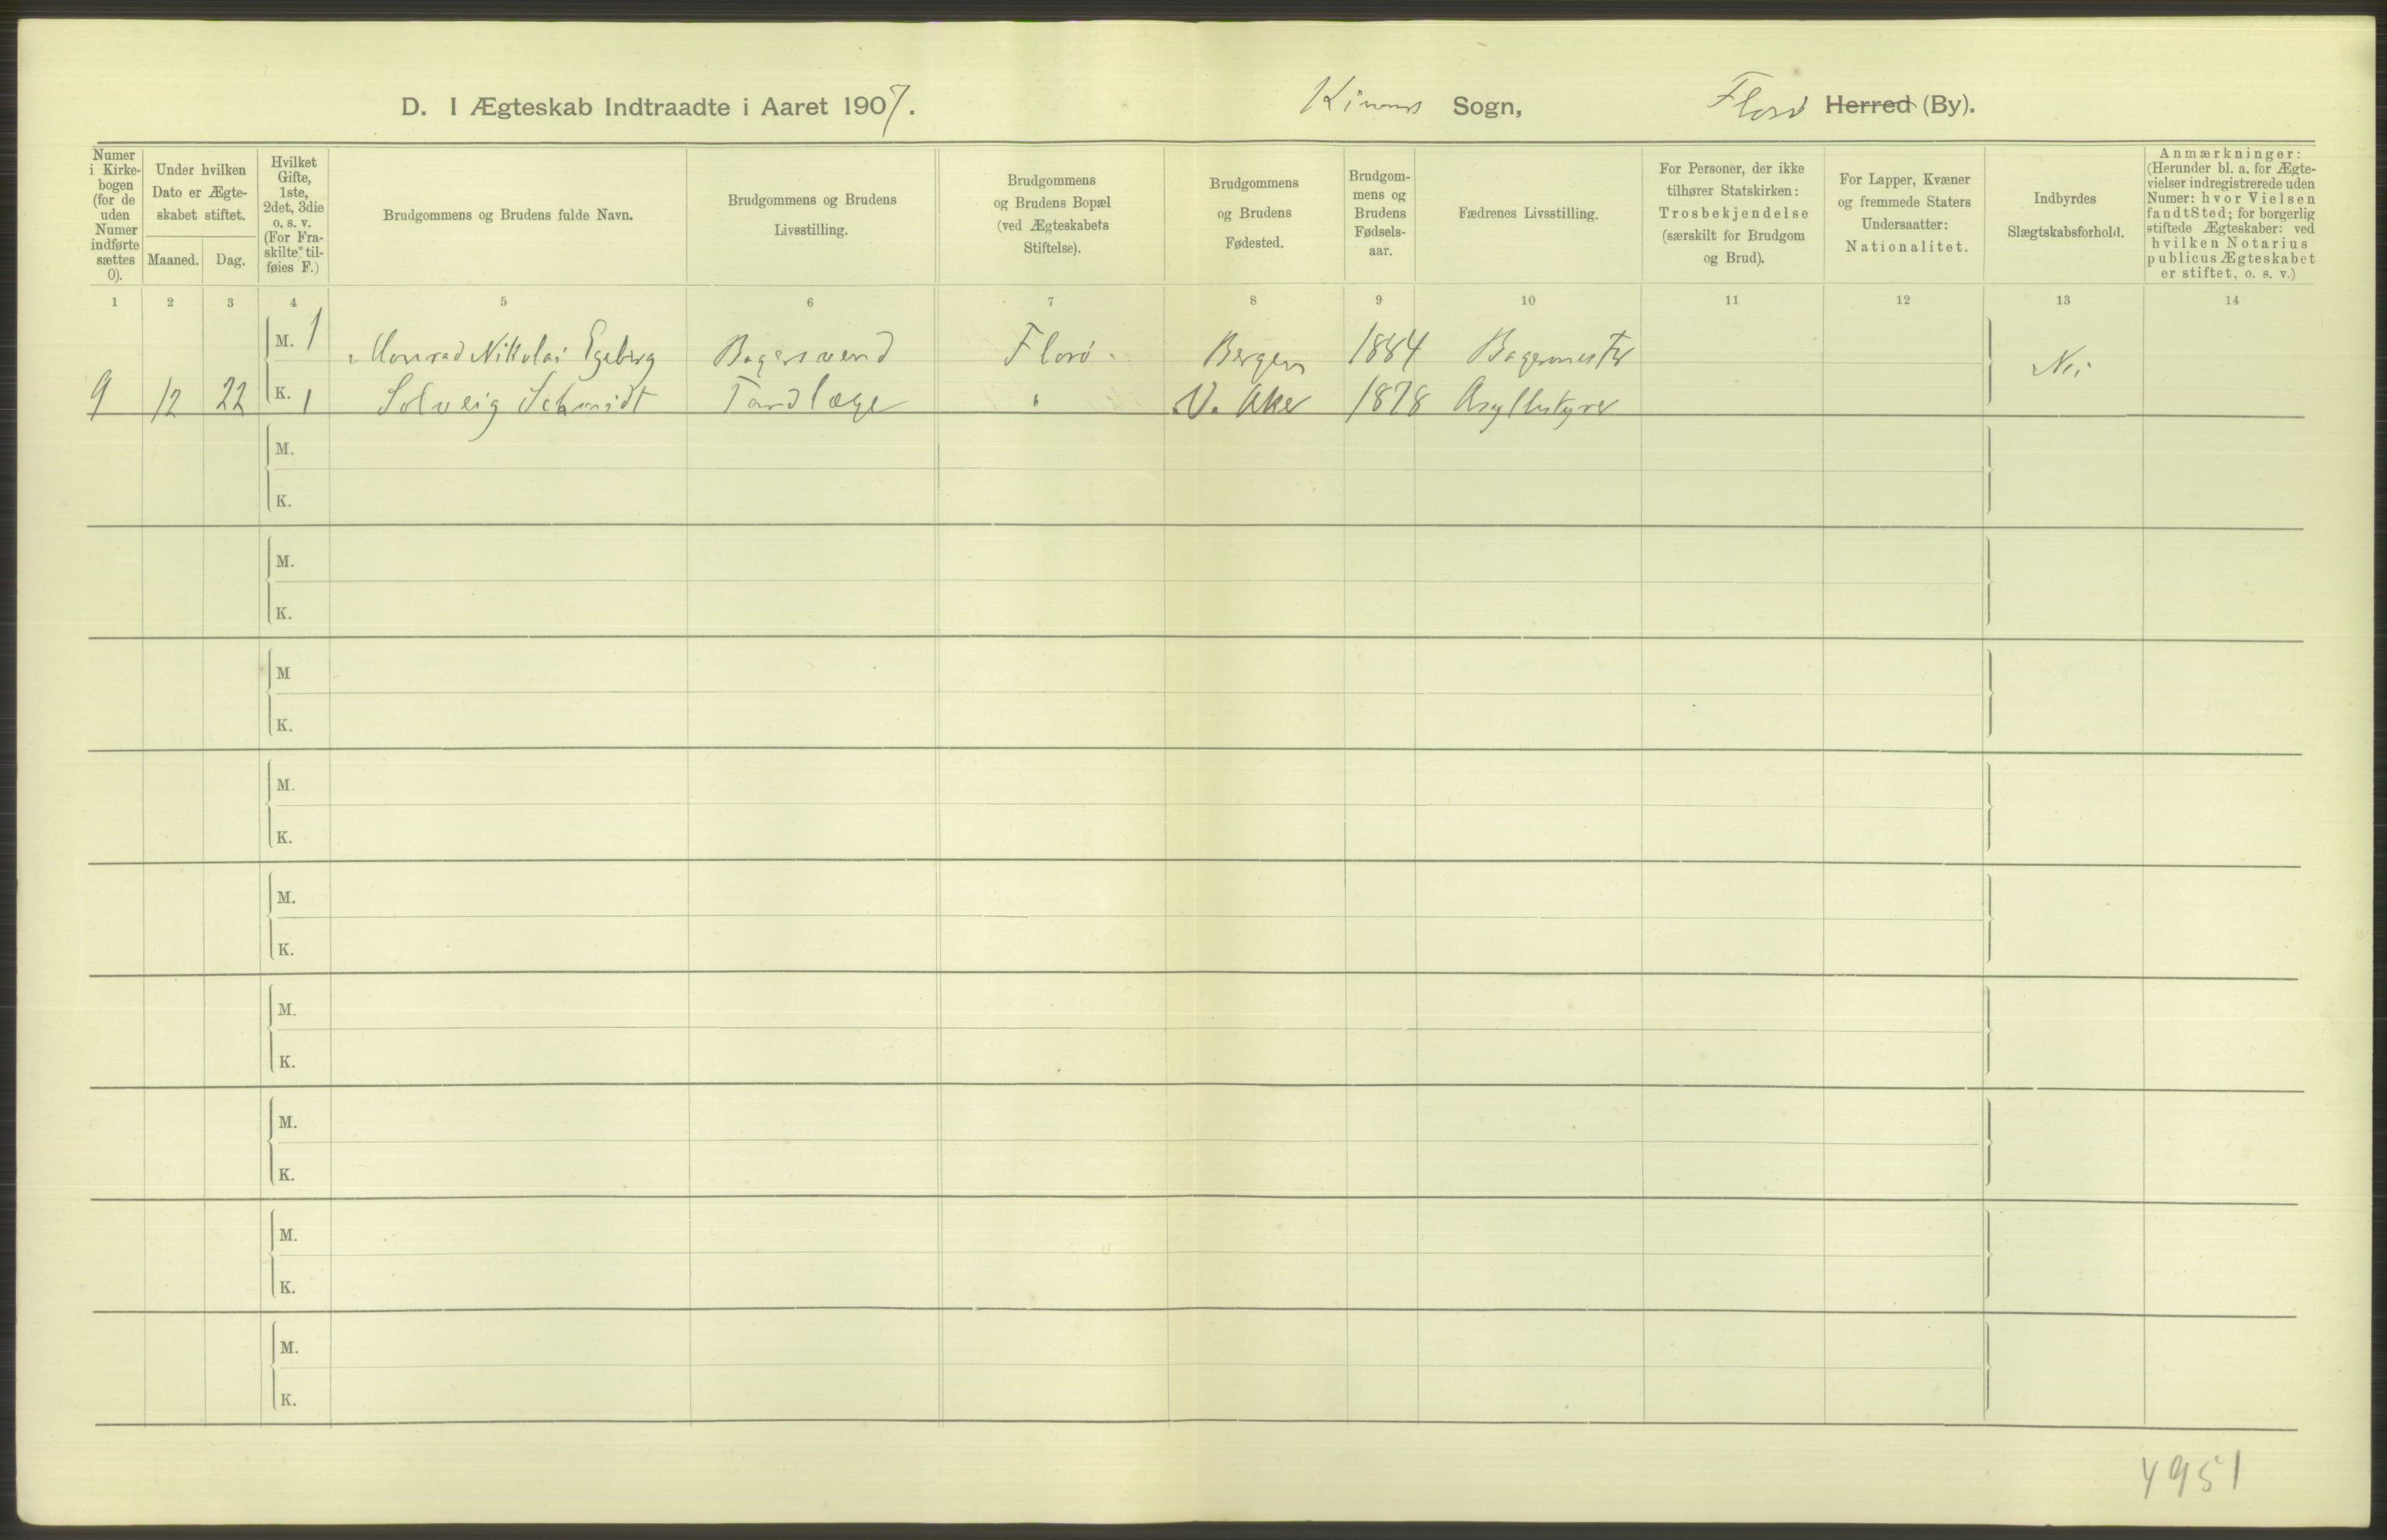 D. I Ægteskab Indtraadte i Aaret 1907. Kinns Sogn, Florø Herred (By).
Numer i Kirkebogen (for de uden Numer indførte sættes 0).
Under hvilken Dato er Ægteskabet stiftet.
Maaned. Dag.
Hvilket Gifte, 1ste, 2det, 3die o. s. v. (For Fraskilte tilføies F.)
Brudgommens og Brudens fulde Navn.
Brudgommens og Brudens Livsstilling.
Brudgommens og Brudens Bopæl (ved Ægteskabets Stiftelse).
Brudgommens og Brudens Fødested.
Brudgommens og Brudens Fødselsaar.
Fædrenes Livsstilling.
For Personer, der ikke tilhører Statskirken: Trosbekjendelse (særskilt for Brudgom og Brud).
For Lapper, Kvæner og fremmede Staters Undersaatter: Nationalitet.
Indbyrdes Slægtskabsforhold.
Anmærkninger: (Herunder bl. a. for Ægtevielser indregistrerede uden Numer: hvor Vielsen fandt Sted; for borgerlig stiftede Ægteskaber: ved hvilken Notarius publicus Ægteskabet er stiftet, o. s. v.)
1 2 3 4 5 6 7 8 9 10 11 12 13 14
M. 1 Monrad Nikolai Egeberg Bagersvend Florø Bergen 1884 Bagermester Nei
9 12 22 K. 1 Solveig Schmidt Tandlæge " V. Aker 1878 Asylbestyrer
M.
K.
M.
K.
M
K.
M.
K.
M.
K.
M.
K.
M.
K.
M.
K.
M.
K.
4951